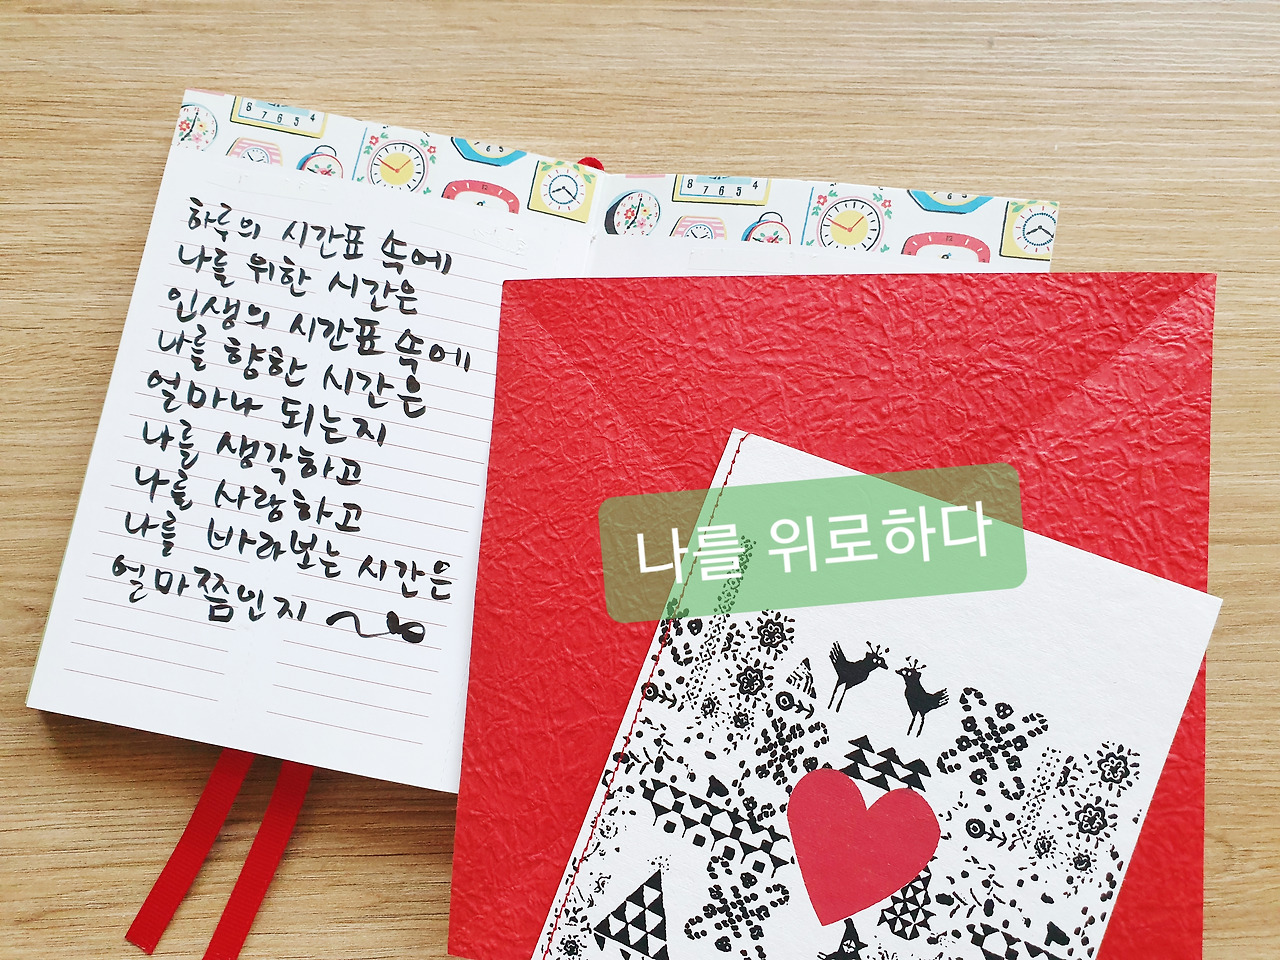 하루의 시간표 속에
나를 위한 시간은
인생의 시간표 속에
나를 향한 시간은
얼마나 되는지
나를 생각하고
나를 사랑하고
나를 바라보는 시간은
얼마쯤인지
나를 위로하다
8 7 6 5 4
8 7 6 5 4